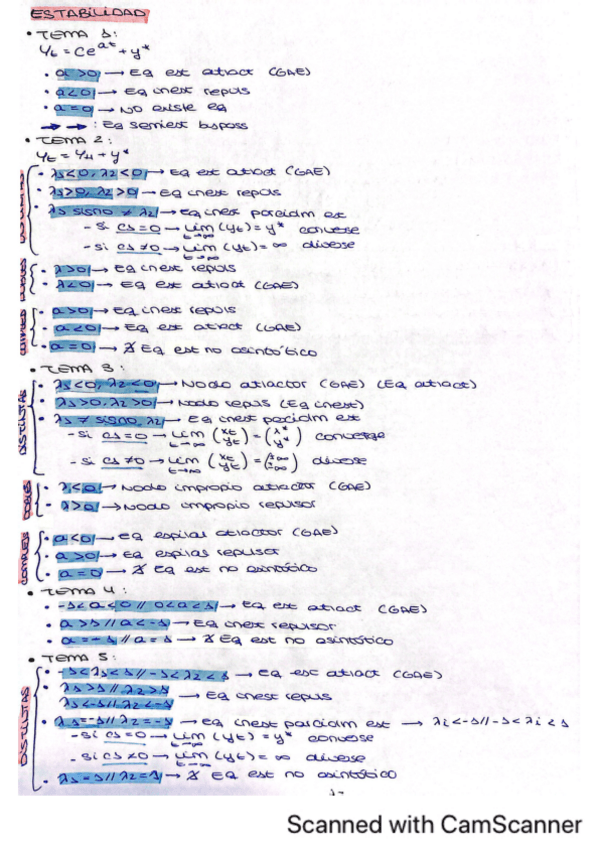 ESTABILIDAD
• TEMA 1:
Yt = Ce^at + y*
• a>0 → Eq est atract (GAE)
• a<0 → Eq inest repuls
• a=0 → NO existe eq
→ → : Eq semiest
• TEMA 2:
Yt = YH + y*
• λ1<0, λ2<0 → Eq est atract (GAE)
• λ1>0, λ2>0 → Eq inest repuls
• λ1 signo ≠ λ2 → Eq inest parcialm est
- Si C1=0 → lim t→∞ (yt) = y* converge
- Si C1≠0 → lim t→∞ (yt) = ∞ diverge
• λ>0 → Eq inest repuls
• λ<0 → Eq est atract (GAE)
• a>0 → Eq inest repuls
• a<0 → Eq est atract (GAE)
• a=0 → ∄ Eq est no asintótico
• TEMA 3:
DISTINTAS
• λ1<0, λ2<0 → Nodo atractor (GAE) (Eq atract)
• λ1>0, λ2>0 → Nodo repuls (Eq inest)
• λ1 ≠ signo, λ2 → Eq inest parcialm est
- Si C1=0 → lim t→∞ (xt yt) = (x* y*) converge
- Si C1≠0 → lim t→∞ (xt yt) = (±∞ ±∞) diverge
DOBLES
• λ<0 → Nodo impropio atractor (GAE)
• λ>0 → Nodo impropio repulsor
COMPLEJAS
• a<0 → Eq espiral atractor (GAE)
• a>0 → Eq espiral repulsor
• a=0 → ∄ Eq est no asintótico
• TEMA 4:
• -1<a<0 // 0<a<1 → Eq est atract (GAE)
• a>1 // a<-1 → Eq inest repulsor
• a=-1 // a=1 → ∄ Eq est no asintótico
• TEMA 5:
DISTINTAS
• -1<λ1<1 // -1<λ2<1 → Eq est atract (GAE)
• λ1>1 // λ2>1
λ1<-1 // λ2<-1 → Eq inest repuls
• λ1=-1 // λ2=-1 → Eq inest parcialm est → λi<-1 // -1<λi<1
- Si C1=0 → lim t→∞ (yt) = y* converge
- Si C1≠0 → lim t→∞ (yt) = ∞ diverge
• λ1=1 // λ2=1 → ∄ Eq est no asintótico
Scanned with CamScanner